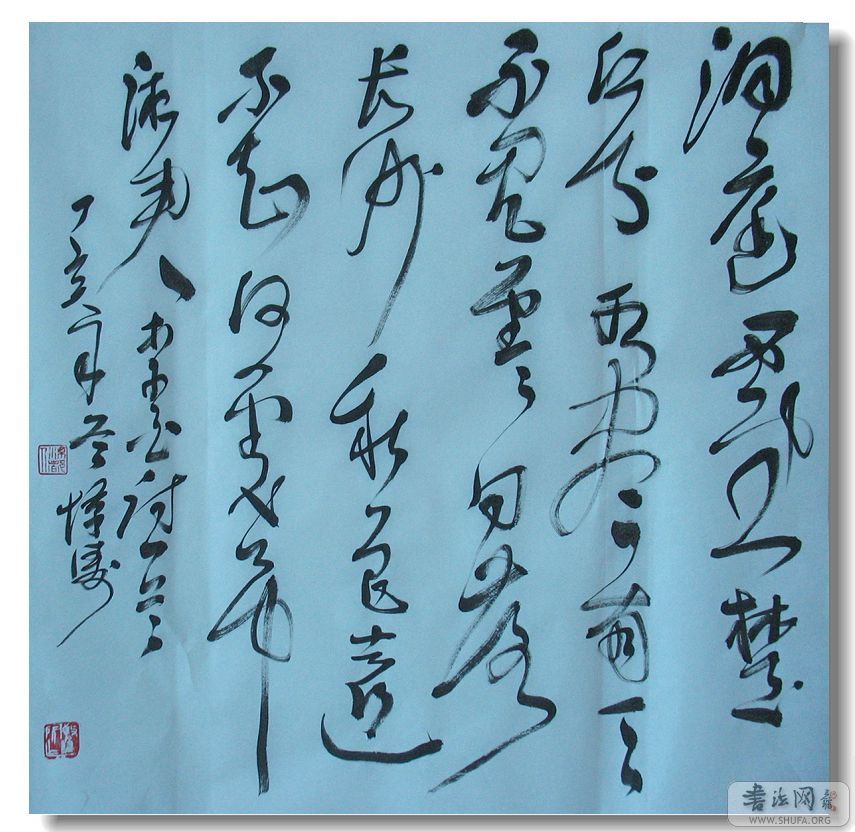 洞庭西望楚
江分水尽南天
不见云日落
长沙秋色远
不知何处吊
湘君 李白诗一首
丁亥年冬
書法网
WWW.SHUFA.ORG